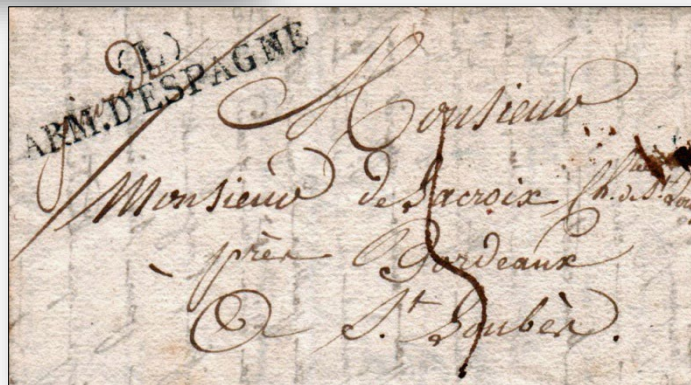 (L)
ARM. D'ESPAGNE
Monsieur
Monsieur de Lacroix Ch. de St.
près Bordeaux
De St. Loubès.
5